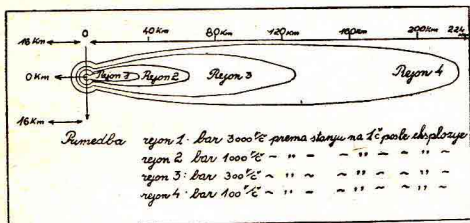 0 40 Km 80 Km 120 Km 160 Km 200 Km 224
16 Km
0 Km
Rejon 1 Rejon 2 Rejon 3 Rejon 4
16 Km
Primedba rejon 1: bar 3000 r/č prema stanju na 1 č posle eksplozije
rejon 2 bar 1000 r/č ~ " ~ ~ " ~ " ~ " ~
rejon 3: bar 300 r/č ~ " ~ ~ " ~ " ~ " ~
rejon 4: bar 100 r/č ~ " ~ ~ " ~ " ~ " ~